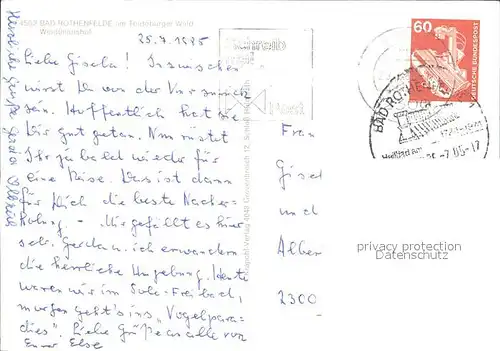 4502 BAD ROTHENFELDE am Teutoburger Wald
25.7.1985
Liebe Gisela! Inzwischen
wirst Du von der Vorsorge
sein. Hoffentlich hat sie
Dir gut getan. Nun rüstet
Ihr ja bald wieder für
eine Reise. Das ist dann
für Dich die beste Nacher-
holung. - Mir gefällt es hier
sehr. Gerda u. ich erwandern
die herrliche Umgebung. Heute
waren wir im Sole-Freibad,
morgen geht's ins "Vogelpara-
dies". Liebe Grüße an alle von
Eurer Else
Herzliche Grüße Gerda
Schreib
mal
Post
60
DEUTSCHE BUNDESPOST
BAD ROTHENFELDE
-7.85-17
Frau
Gisel
und
Alber
2300
privacy protection
Datenschutz